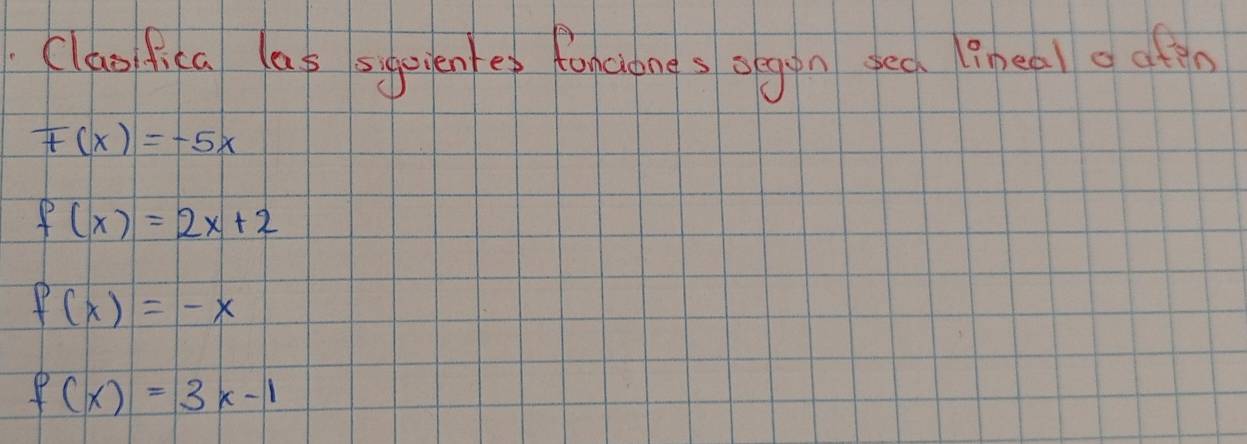 . Clasifica las siguientes funciones según sea lineal o afín
F(x) = -5x
f(x) = 2x+2
f(x) = -x
f(x) = 3x-1